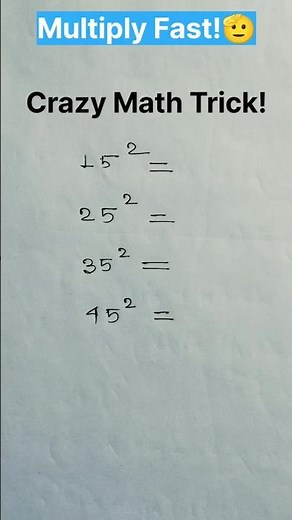 Multiply Fast!🫡
Crazy Math Trick!
15² =
25² =
35² =
45² =